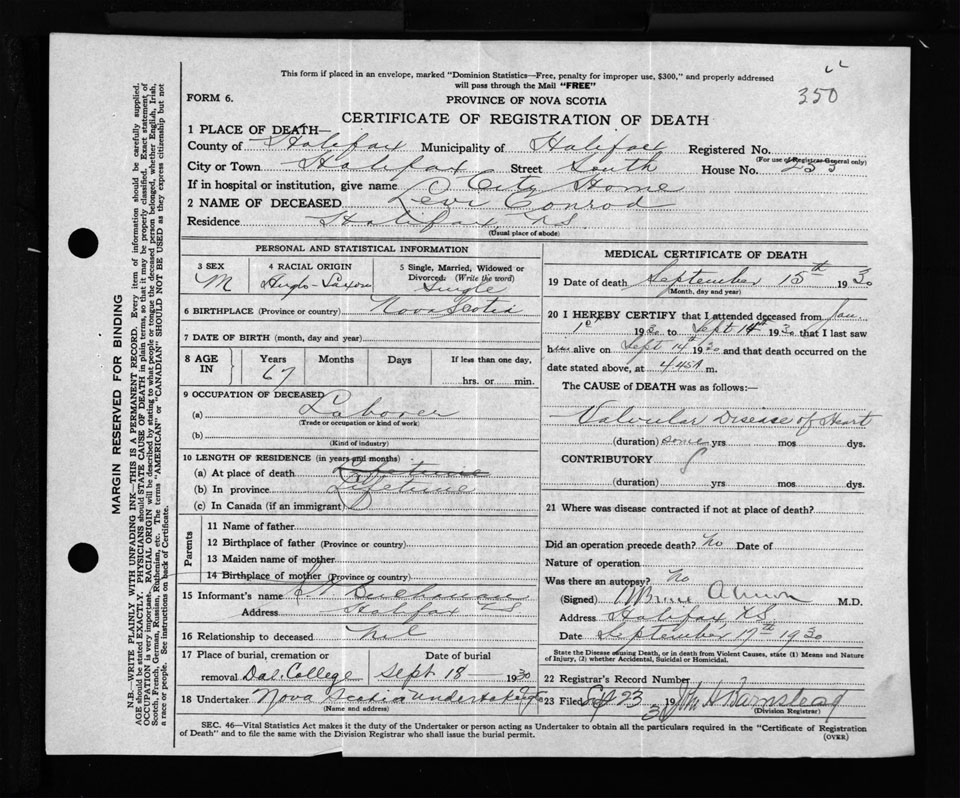 This form if placed in an envelope, marked "Dominion Statistics—Free, penalty for improper use, $300," and properly addressed
will pass through the Mail "FREE"
350
FORM 6.
PROVINCE OF NOVA SCOTIA
CERTIFICATE OF REGISTRATION OF DEATH
1 PLACE OF DEATH—
County of Halifax Municipality of Halifax Registered No.
(For use of Registrar General only)
City or Town Halifax Street South House No. 253
If in hospital or institution, give name City Home
2 NAME OF DECEASED Levi Conrod
Residence Halifax NS
(Usual place of abode)
PERSONAL AND STATISTICAL INFORMATION
3 SEX M
4 RACIAL ORIGIN Anglo-Saxon
5 Single, Married, Widowed or Divorced: (Write the word) Single
6 BIRTHPLACE (Province or country) Nova Scotia
7 DATE OF BIRTH (month, day and year)
8 AGE IN Years Months Days If less than one day,
67 hrs. or min.
9 OCCUPATION OF DECEASED
(a) Laborer
(Trade or occupation or kind of work)
(b)
(Kind of industry)
10 LENGTH OF RESIDENCE (in years and months)
(a) At place of death Lifetime
(b) In province Lifetime
(c) In Canada (if an immigrant)
Parents
11 Name of father
12 Birthplace of father (Province or country)
13 Maiden name of mother
14 Birthplace of mother (Province or country)
15 Informant's name Buchanan
Address Halifax NS
16 Relationship to deceased Nil
17 Place of burial, cremation or removal Dal. College
Date of burial Sept 18 1930
18 Undertaker Nova Scotia Undertaking
(Name and address)
MEDICAL CERTIFICATE OF DEATH
19 Date of death September 15th 1930
(Month, day and year)
20 I HEREBY CERTIFY that I attended deceased from Jan.
1st 1930 to Sept 14th 1930 that I last saw
him alive on Sept 14th 1930 and that death occurred on the
date stated above, at 4 45A m.
The CAUSE of DEATH was as follows:
Valvular Disease of Heart
(duration) some yrs mos dys.
CONTRIBUTORY
(duration) yrs. mos. dys.
21 Where was disease contracted if not at place of death?
Did an operation precede death? No Date of
Nature of operation
Was there an autopsy? No
(Signed) M.D.
Address Halifax NS
Date September 17th 1930
State the Disease causing Death, or in death from Violent Causes, state (1) Means and Nature
of Injury, (2) whether Accidental, Suicidal or Homicidal.
22 Registrar's Record Number
23 Filed 23 1930 Barnstead
(Division Registrar)
SEC. 46—Vital Statistics Act makes it the duty of the Undertaker or person acting as Undertaker to obtain all the particulars required in the "Certificate of Registration
of Death" and to file the same with the Division Registrar who shall issue the burial permit.
(OVER)
MARGIN RESERVED FOR BINDING
N.B.—WRITE PLAINLY WITH UNFADING INK—THIS IS A PERMANENT RECORD. Every item of information should be carefully supplied.
AGE should be stated EXACTLY. PHYSICIANS should STATE CAUSE OF DEATH in plain terms, so that it may be properly classified. Exact statement of
OCCUPATION is very important. RACIAL ORIGIN will be described by stating to what people or tongue the deceased person belonged, whether English, Irish,
Scotch, French, German, Russian, Ruthenian, etc. The terms "AMERICAN" or "CANADIAN" SHOULD NOT BE USED as they express citizenship but not
a race or people. See instructions on back of Certificate.